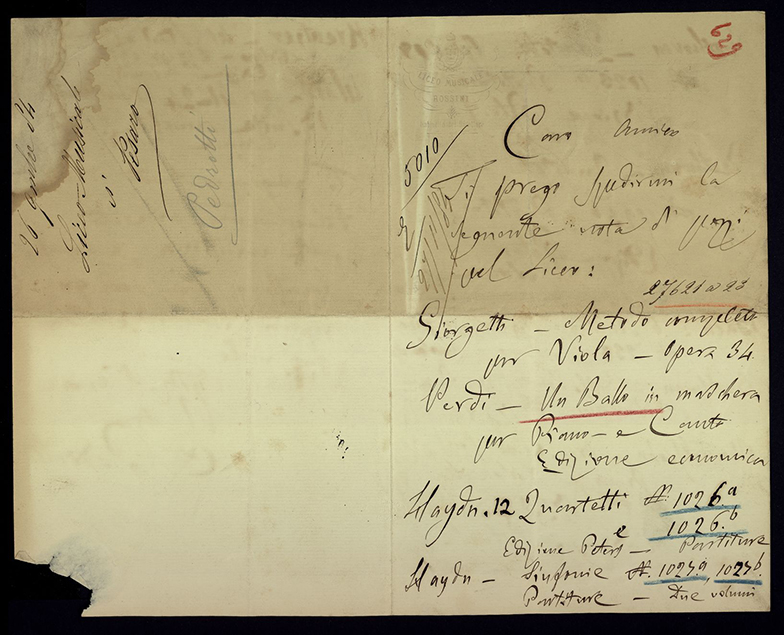 Caro amico
Ti prego spedirmi la
seguente nota di pezzi
pel Liceo:
27621 a 23
Giorgetti – Metodo completo
per Viola – Opera 34.
Verdi – Un Ballo in maschera
per Piano – e Canto
Edizione economica
Haydn. 12 Quartetti N. 1026.a
1026.b
Edizione Peters – Partiture
Haydn – Sinfonie N. 1027a, 1027b.
Partiture – Due volumi
5010
Liceo Musicale
di Pesaro
Pedrotti